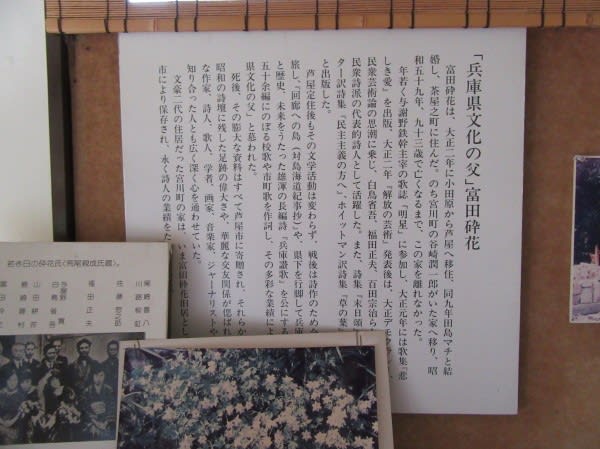 「兵庫県文化の父」富田砕花
富田砕花は、大正二年に小田原から芦屋へ移住、同九年田島マチと結
婚し、茶屋之町に住んだ。のち宮川町の谷崎潤一郎がいた家へ移り、昭
和五十九年、九十三歳で亡くなるまで、この家を離れなかった。
年若く与謝野鉄幹主宰の歌誌『明星』に参加し、大正元年には歌集『悲
しき愛』を出版、大正二年『解放の芸術』発表後は、大正デモクラ
民衆芸術論の思潮に乗じ、白鳥省吾、福田正夫、百田宗治ら
民衆詩派の代表的詩人として活躍した。また、詩集『末日頌
ター訳詩集『民主主義の方へ』、ホイットマン訳詩集『草の葉
と出版した。
芦屋定住後もその文学活動は変わらず、戦後は詩作のため
旅し、『回廊への島(対島海道紀事抄)』や、県下を行脚して兵庫
と歴史、未来をうたった雄渾の長編詩『兵庫讃歌』を公にする
五十余編にのぼる校歌や市町歌を作詞し、その多彩な業績によ
県文化の父」と慕われた。
死後、その膨大な資料はすべて芦屋市に寄贈され、それらか
昭和の詩壇に残した足跡の偉大さや、華麗な交友関係が偲ばれ
な作家、詩人、歌人、学者、画家、音楽家、ジャーナリストや
知り合った人とも広く深く心を通わせていた。
文豪二代の住居だった宮川町の家は、いま富田砕花旧居とし
市により保存され、永く詩人の業績をた